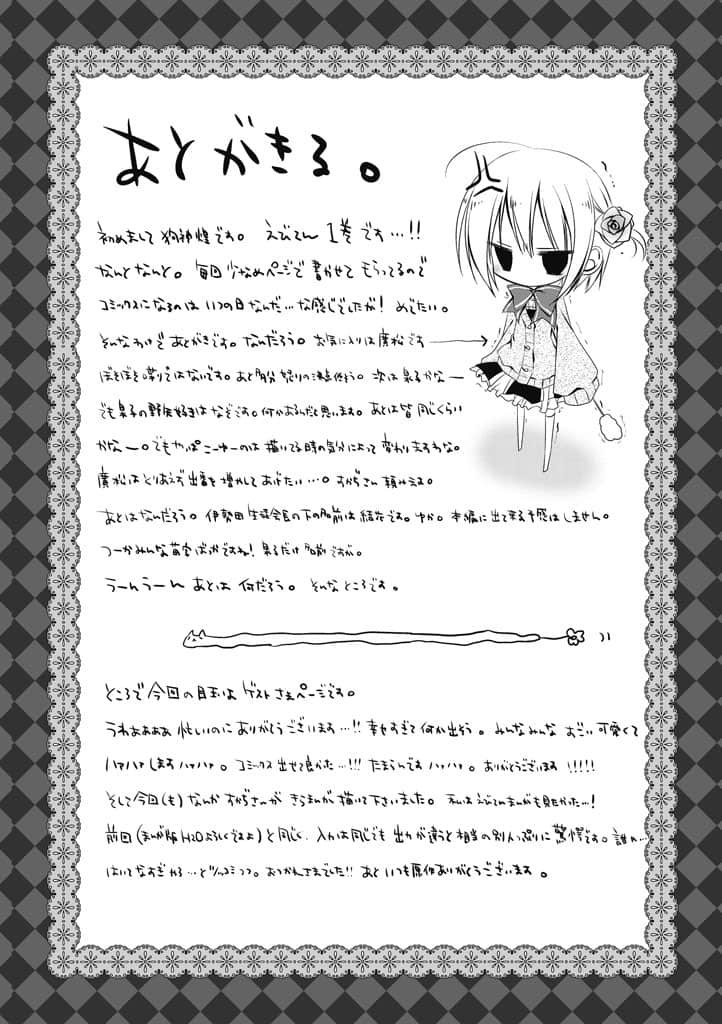 あとがきる。
初めまして狗神煌です。 えびてん 1巻です…!!
なんとなんと。毎回少なめページで書かせてもらってるので
コミックスになるのはいつの日なんだ…な感じでしたが！めでたい。
そんなわけであとがきです。なんだろう。お気に入りは廣松です
ぼそぼそ喋りではないです。あと多分怒りの沸点低そう。次は泉子かな—
でも泉子の野矢好きはなぞです。何かあるんだと思います。あとは皆同じくらい
かな—。でもやっぱこーゆーのは描いてる時の気分によって変わりますわな。
廣松はとりあえず出番を増やしてあげたい…。すかぢさん頼みまする。
あとはなんだろう。伊勢田生徒会長の下の名前は結花です。ゆか。本編に出て来る予感はしません。
つーかみんな苗字ばかですね！泉子だけ名前ですが。
うーんうーん あとは 何だろう。 そんなところです。
ところで今回の目玉はゲストさまページです。
うわぁぁぁぁ忙しいのにありがとうございます…!! 幸せすぎて何か出そう。みんなみんなおごい可愛くて
ハァハァしますハァハァ。コミックス出せて良かた…!!! たまらんですハァハァ。ありがとうございます!!!!!
そして今回(も)なんかすかぢさんがきらまんが描いて下さいました。
前回(まんが版H2Oよろしくですよ)と同じく、入力は同じでも出力が違うと相当の別人っぷりに驚愕です。誰か…
おつかれさまでした!! あといつも原作ありがとうございます。